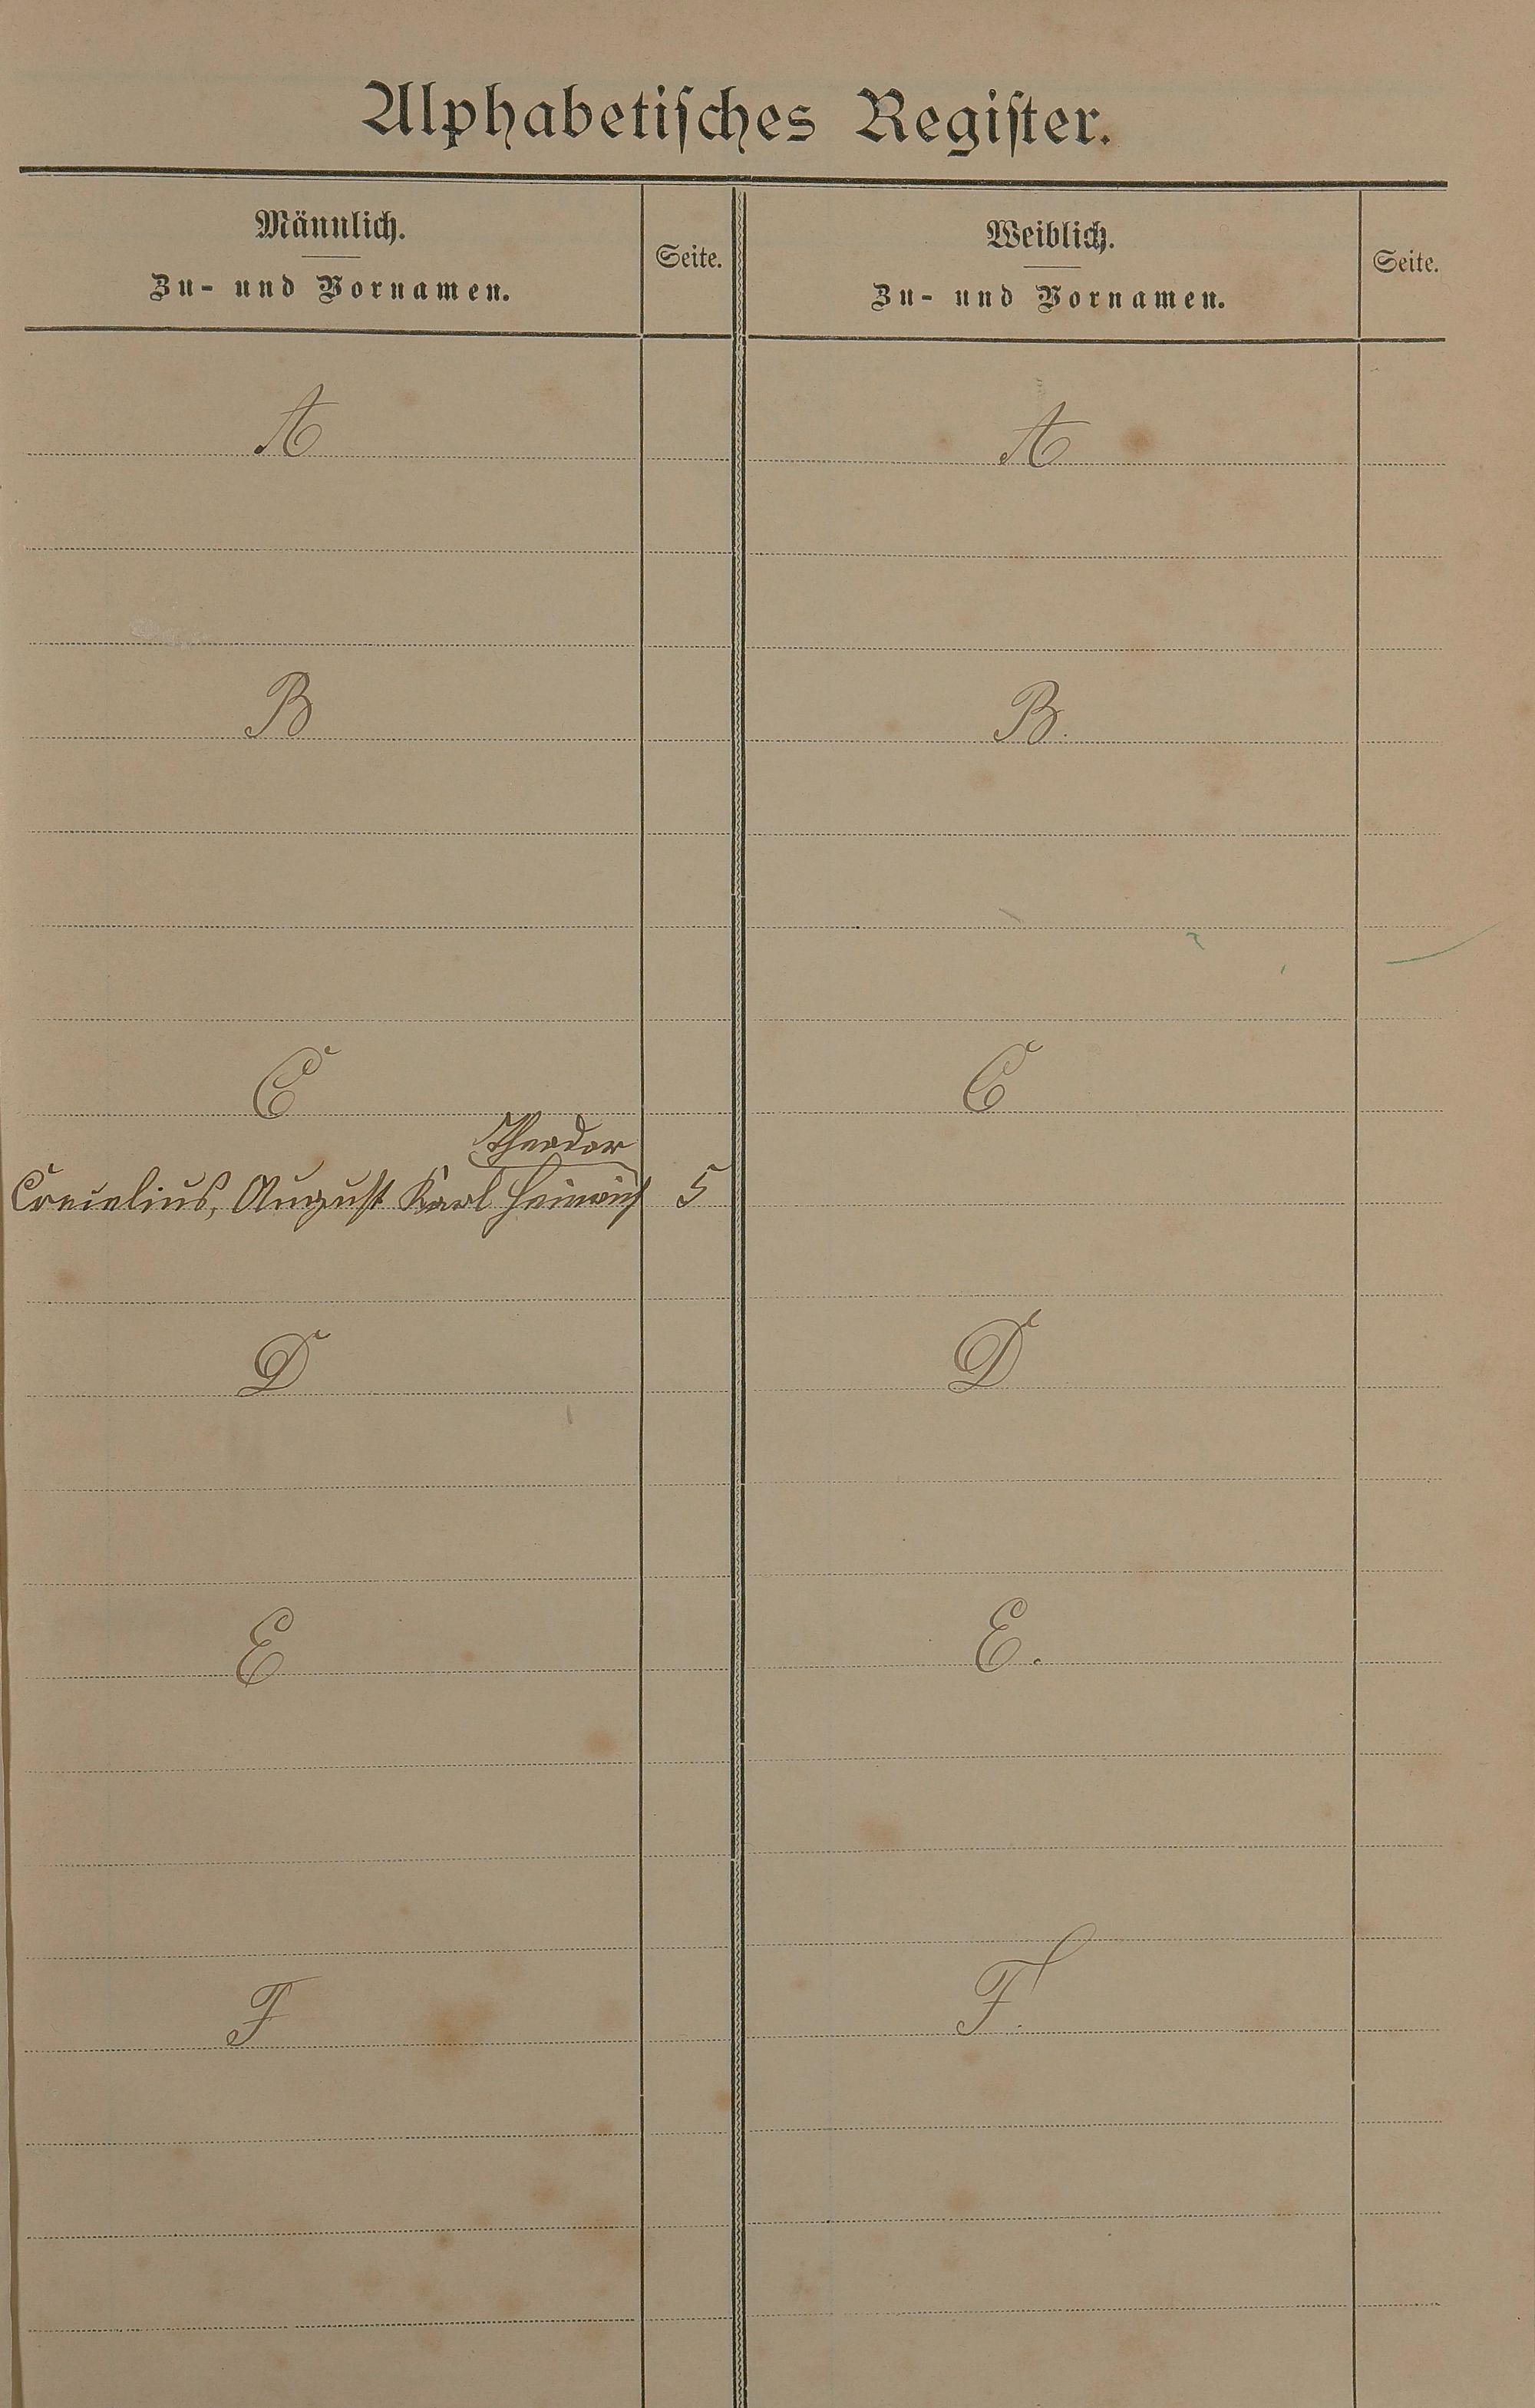 Alphabetisches Register.
Männlich.
Zu- und Vornamen.
Seite.
Weiblich.
Zu- und Vornamen.
Seite.
A
A
B
B.
C
C
Theodor
Cornelius, August Karl Heinrich 5
D
D
E
E.
F
F.